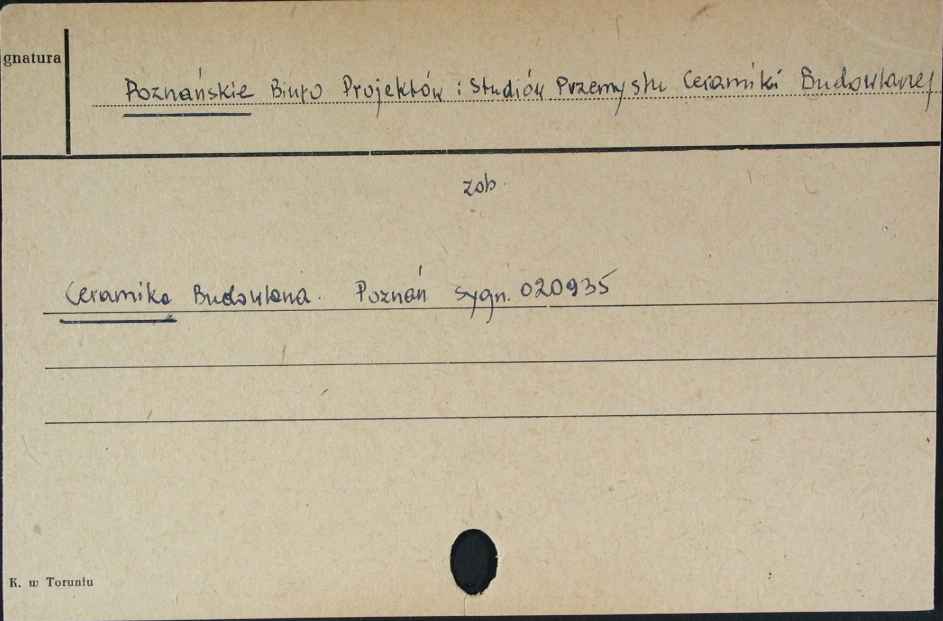 gnatura
Poznańskie Biuro Projektów i Studiów Przemysłu Ceramiki Budowlanej
zob.
Ceramika Budowlana. Poznań sygn. 020935
K. w Toruniu